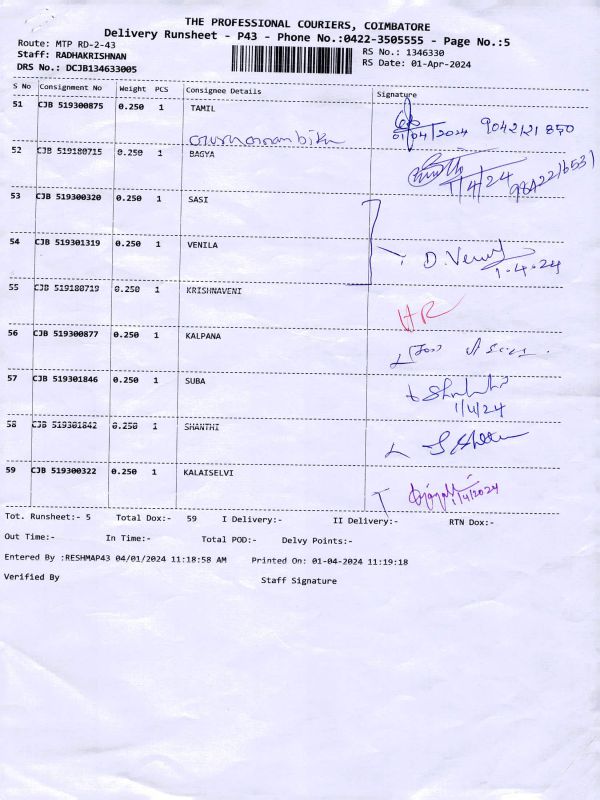 THE PROFESSIONAL COURIERS, COIMBATORE
Delivery Runsheet - P43 - Phone No.:0422-3505555 - Page No.:5
Route: MTP RD-2-43
RS No.: 1346330
Staff: RADHAKRISHNAN
RS Date: 01-Apr-2024
DRS No.: DCJB134633005
S No Consignment No Weight PCS Consignee Details Signature
51 CJB 519300875 0.250 1 TAMIL
01/04/2024 9042121850
52 CJB 519180715 0.250 1 BAGYA
1/4/24
53 CJB 519300320 0.250 1 SASI
54 CJB 519301319 0.250 1 VENILA
D.
1.4.24
55 CJB 519180719 0.250 1 KRISHNAVENI
HR
56 CJB 519300877 0.250 1 KALPANA
57 CJB 519301846 0.250 1 SUBA
1/4/24
58 CJB 519301842 0.250 1 SHANTHI
59 CJB 519300322 0.250 1 KALAISELVI
1/4/2024
Tot. Runsheet:- 5 Total Dox:- 59 I Delivery:- II Delivery:- RTN Dox:-
Out Time:- In Time:- Total POD:- Delvy Points:-
Entered By :RESHMAP43 04/01/2024 11:18:58 AM Printed On: 01-04-2024 11:19:18
Verified By Staff Signature